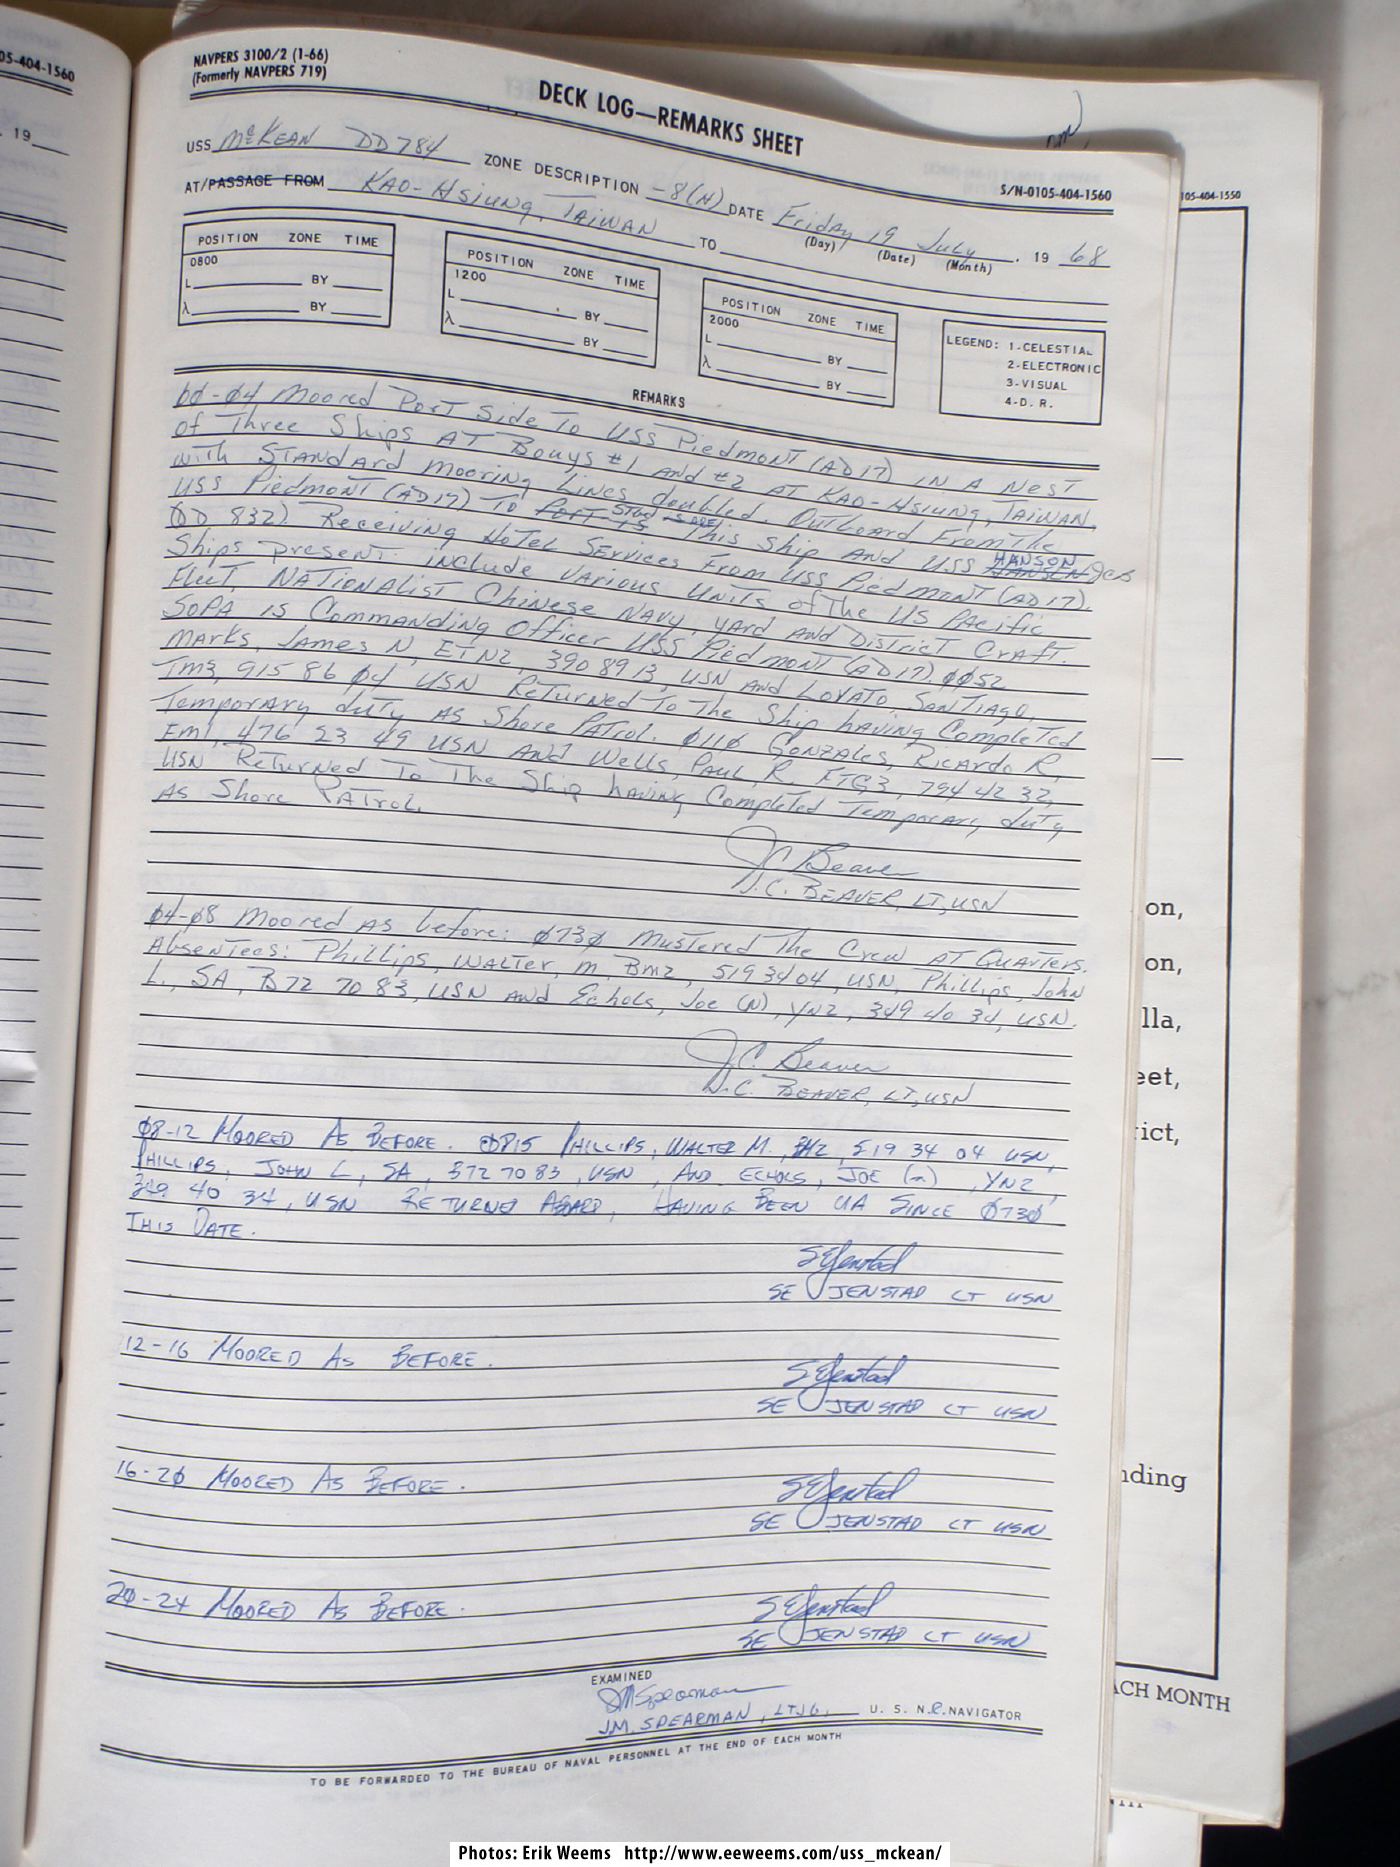 05-404-1560
19
NAVPERS 3100/2 (1-66)
(Formerly NAVPERS 719)
DECK LOG—REMARKS SHEET
S/N-0105-404-1560
105-404-1550
USS McKEAN DD784 ZONE DESCRIPTION -8(H) DATE Friday 19 July, 19 68
(Day) (Date) (Month)
AT/PASSAGE FROM KAO-HSiUNG, TAiWAN TO
POSITION ZONE TIME
0800
L BY
λ BY
POSITION ZONE TIME
1200
L BY
λ BY
POSITION ZONE TIME
2000
L BY
λ BY
LEGEND: 1-CELESTIAL
2-ELECTRONIC
3-VISUAL
4-D. R.
REMARKS
00-04 Moored Port Side To USS Piedmont (AD17) IN A NEST
of Three Ships AT Bouys #1 AND #2 AT KAO-HSiUNG, TAiWAN,
with STANDArd mooring Lines doubled. Outboard From The
USS Piedmont (AD17) To Port is STBD SIDE This Ship AND USS HANSEN HANSON JCB
(DD 832). Receiving Hotel Services From USS Piedmont (AD17).
Ships present: include VArious Units of The US PAcific
Fleet, NATionAList Chinese NAvy, yArd AND District CrAft.
SOPA is COMMANDing Officer USS Piedmont (AD17). 0052
MARKS, JAmes N, ETN2, 390 89 13, USN AND LOVATO, SANTIAGO,
TM3, 915 86 04 USN ReTurned To The Ship hAving CompleTed
TemporAry duTy AS Shore PATrol. 0110 GONZALES, RicArdo R,
EM1, 476 23 49 USN AND Wells, PAul, R. FTG3, 794 42 32,
USN ReTurned To The Ship hAving CompleTed TemporAry duTy
AS Shore PATrol.
JC Beaver
J.C. BEAVER, LT, USN
04-08 Moored AS before: 0730 MusTered The Crew AT QuArTers.
AbsenTees: PhiLLips, WALTer, M, BM2, 519 34 04, USN, PhiLLips, John
L., SA, B72 70 83, USN AND Echols, Joe (N), YN2, 349 40 34, USN.
JC Beaver
J.C. BEAVER, LT, USN
08-12 MOORED AS BEFORE. 0815 PHILLIPS, WALTER M., BM2, 519 34 04 USN,
PHILLIPS, JOHN L, SA, B72 70 83, USN, AND ECHOLS, JOE (n), YN2,
349 40 34, USN RETURNED ABOARD, HAVING BEEN UA SINCE 0730
THIS DATE.
SE Jenstad
SE JENSTAD LT USN
12-16 MOORED AS BEFORE.
SE Jenstad
SE JENSTAD LT USN
16-20 MOORED AS BEFORE.
SE Jenstad
SE JENSTAD LT USN
20-24 MOORED AS BEFORE.
SE Jenstad
SE JENSTAD LT USN
EXAMINED
JM Spearman
J.M. SPEARMAN, LTJG, U. S. N.R. NAVIGATOR
TO BE FORWARDED TO THE BUREAU OF NAVAL PERSONNEL AT THE END OF EACH MONTH
on,
on,
lla,
eet,
rict,
nding
ACH MONTH
Photos: Erik Weems http://www.eeweems.com/uss_mckean/